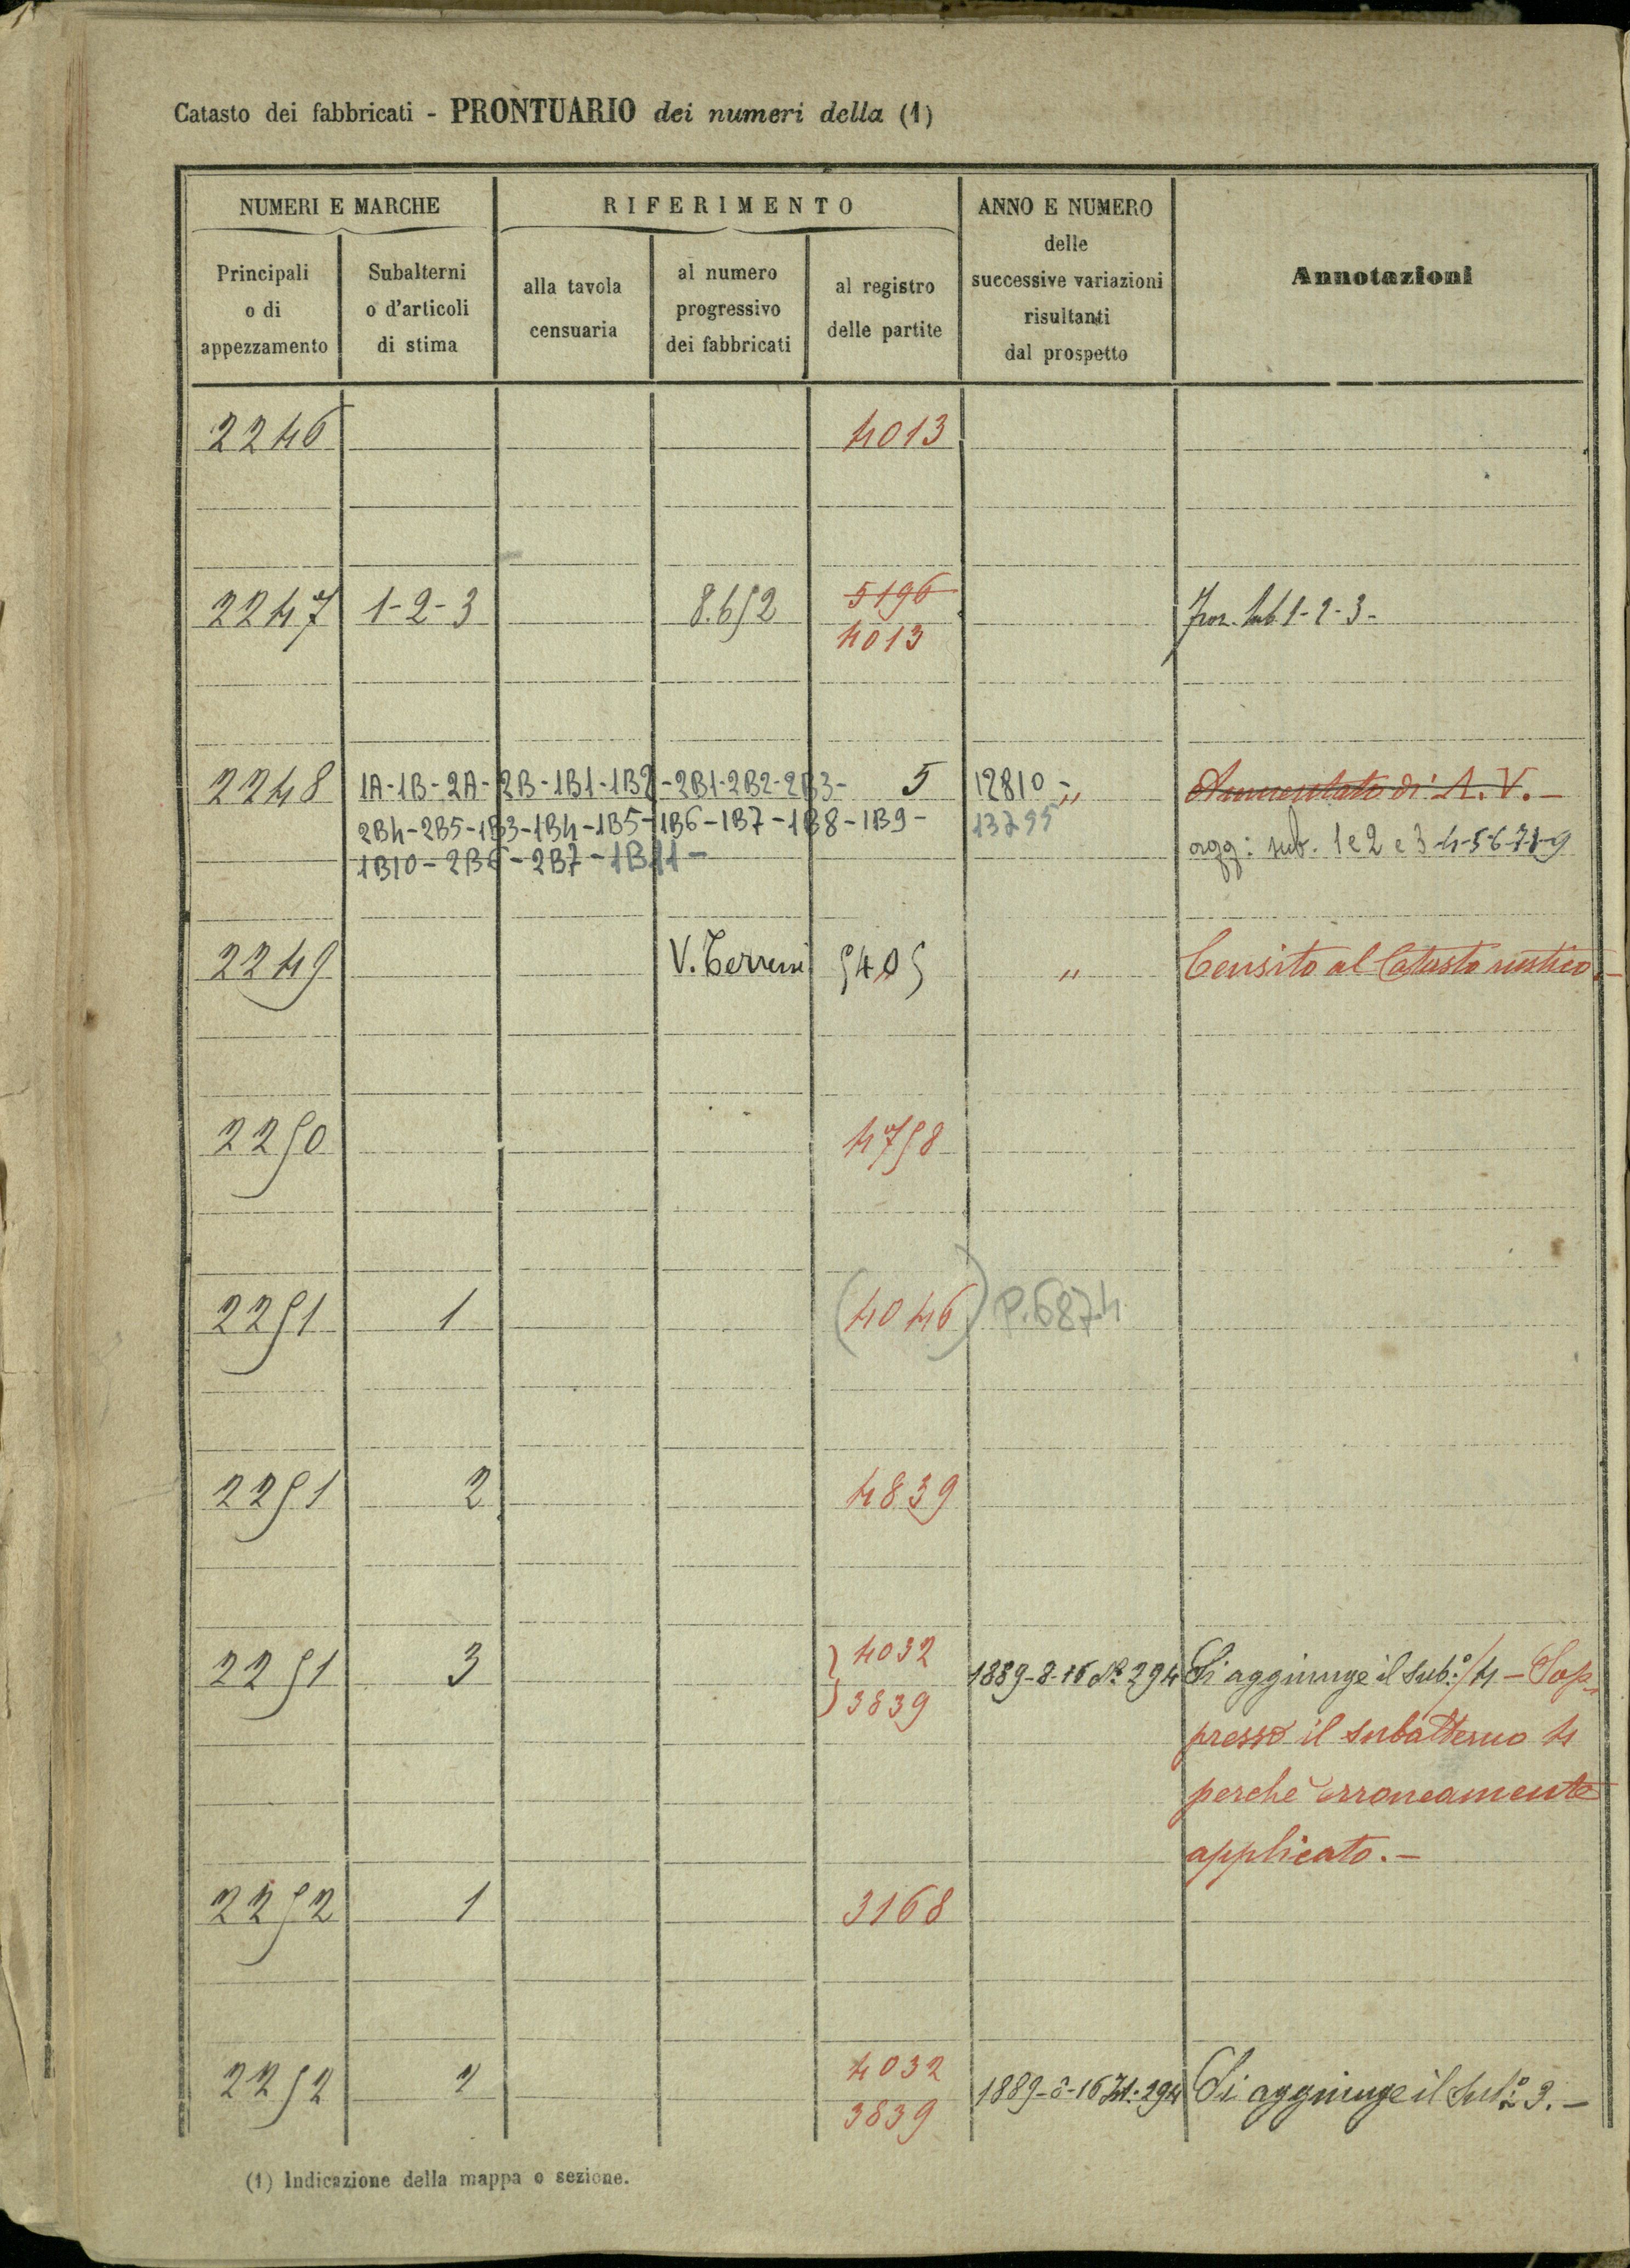 Catasto dei fabbricati - PRONTUARIO dei numeri della (1)
NUMERI E MARCHE
RIFERIMENTO
ANNO E NUMERO
delle
successive variazioni
risultanti
dal prospetto
Annotazioni
Principali
o di
appezzamento
Subalterni
o d'articoli
di stima
alla tavola
censuaria
al numero
progressivo
dei fabbricati
al registro
delle partite
2246 4013
5196
2247 1-2-3 8.652 sub 1-2-3-
4013
2248 1A-1B-2A-2B-1B1-1B2-2B1-2B2-2B3- 5 12810 - " Aumentato di A.V. -
2B4-2B5-1B3-1B4-1B5-1B6-1B7-1B8-1B9- 13795
1B10-2B6-2B7-1B11- agg: sub. 1 e 2 e 3-4-5-6-7-8-9
2249 V. Terreni 5405 " Censito al Catasto rustico. -
2250 4758
2251 1 (4046) P. 6874
2251 2 4839
2251 3 } 4032 1889-8-16 N° 294 Si aggiunge il sub.° /4 - Sop-
3839
presso il subalterno 4
perchè erroneamente
applicato. -
2252 1 3168
4032
2252 2 1889-8-16 N. 294 Si aggiunge il sub.° 3. -
3839
(1) Indicazione della mappa o sezione.